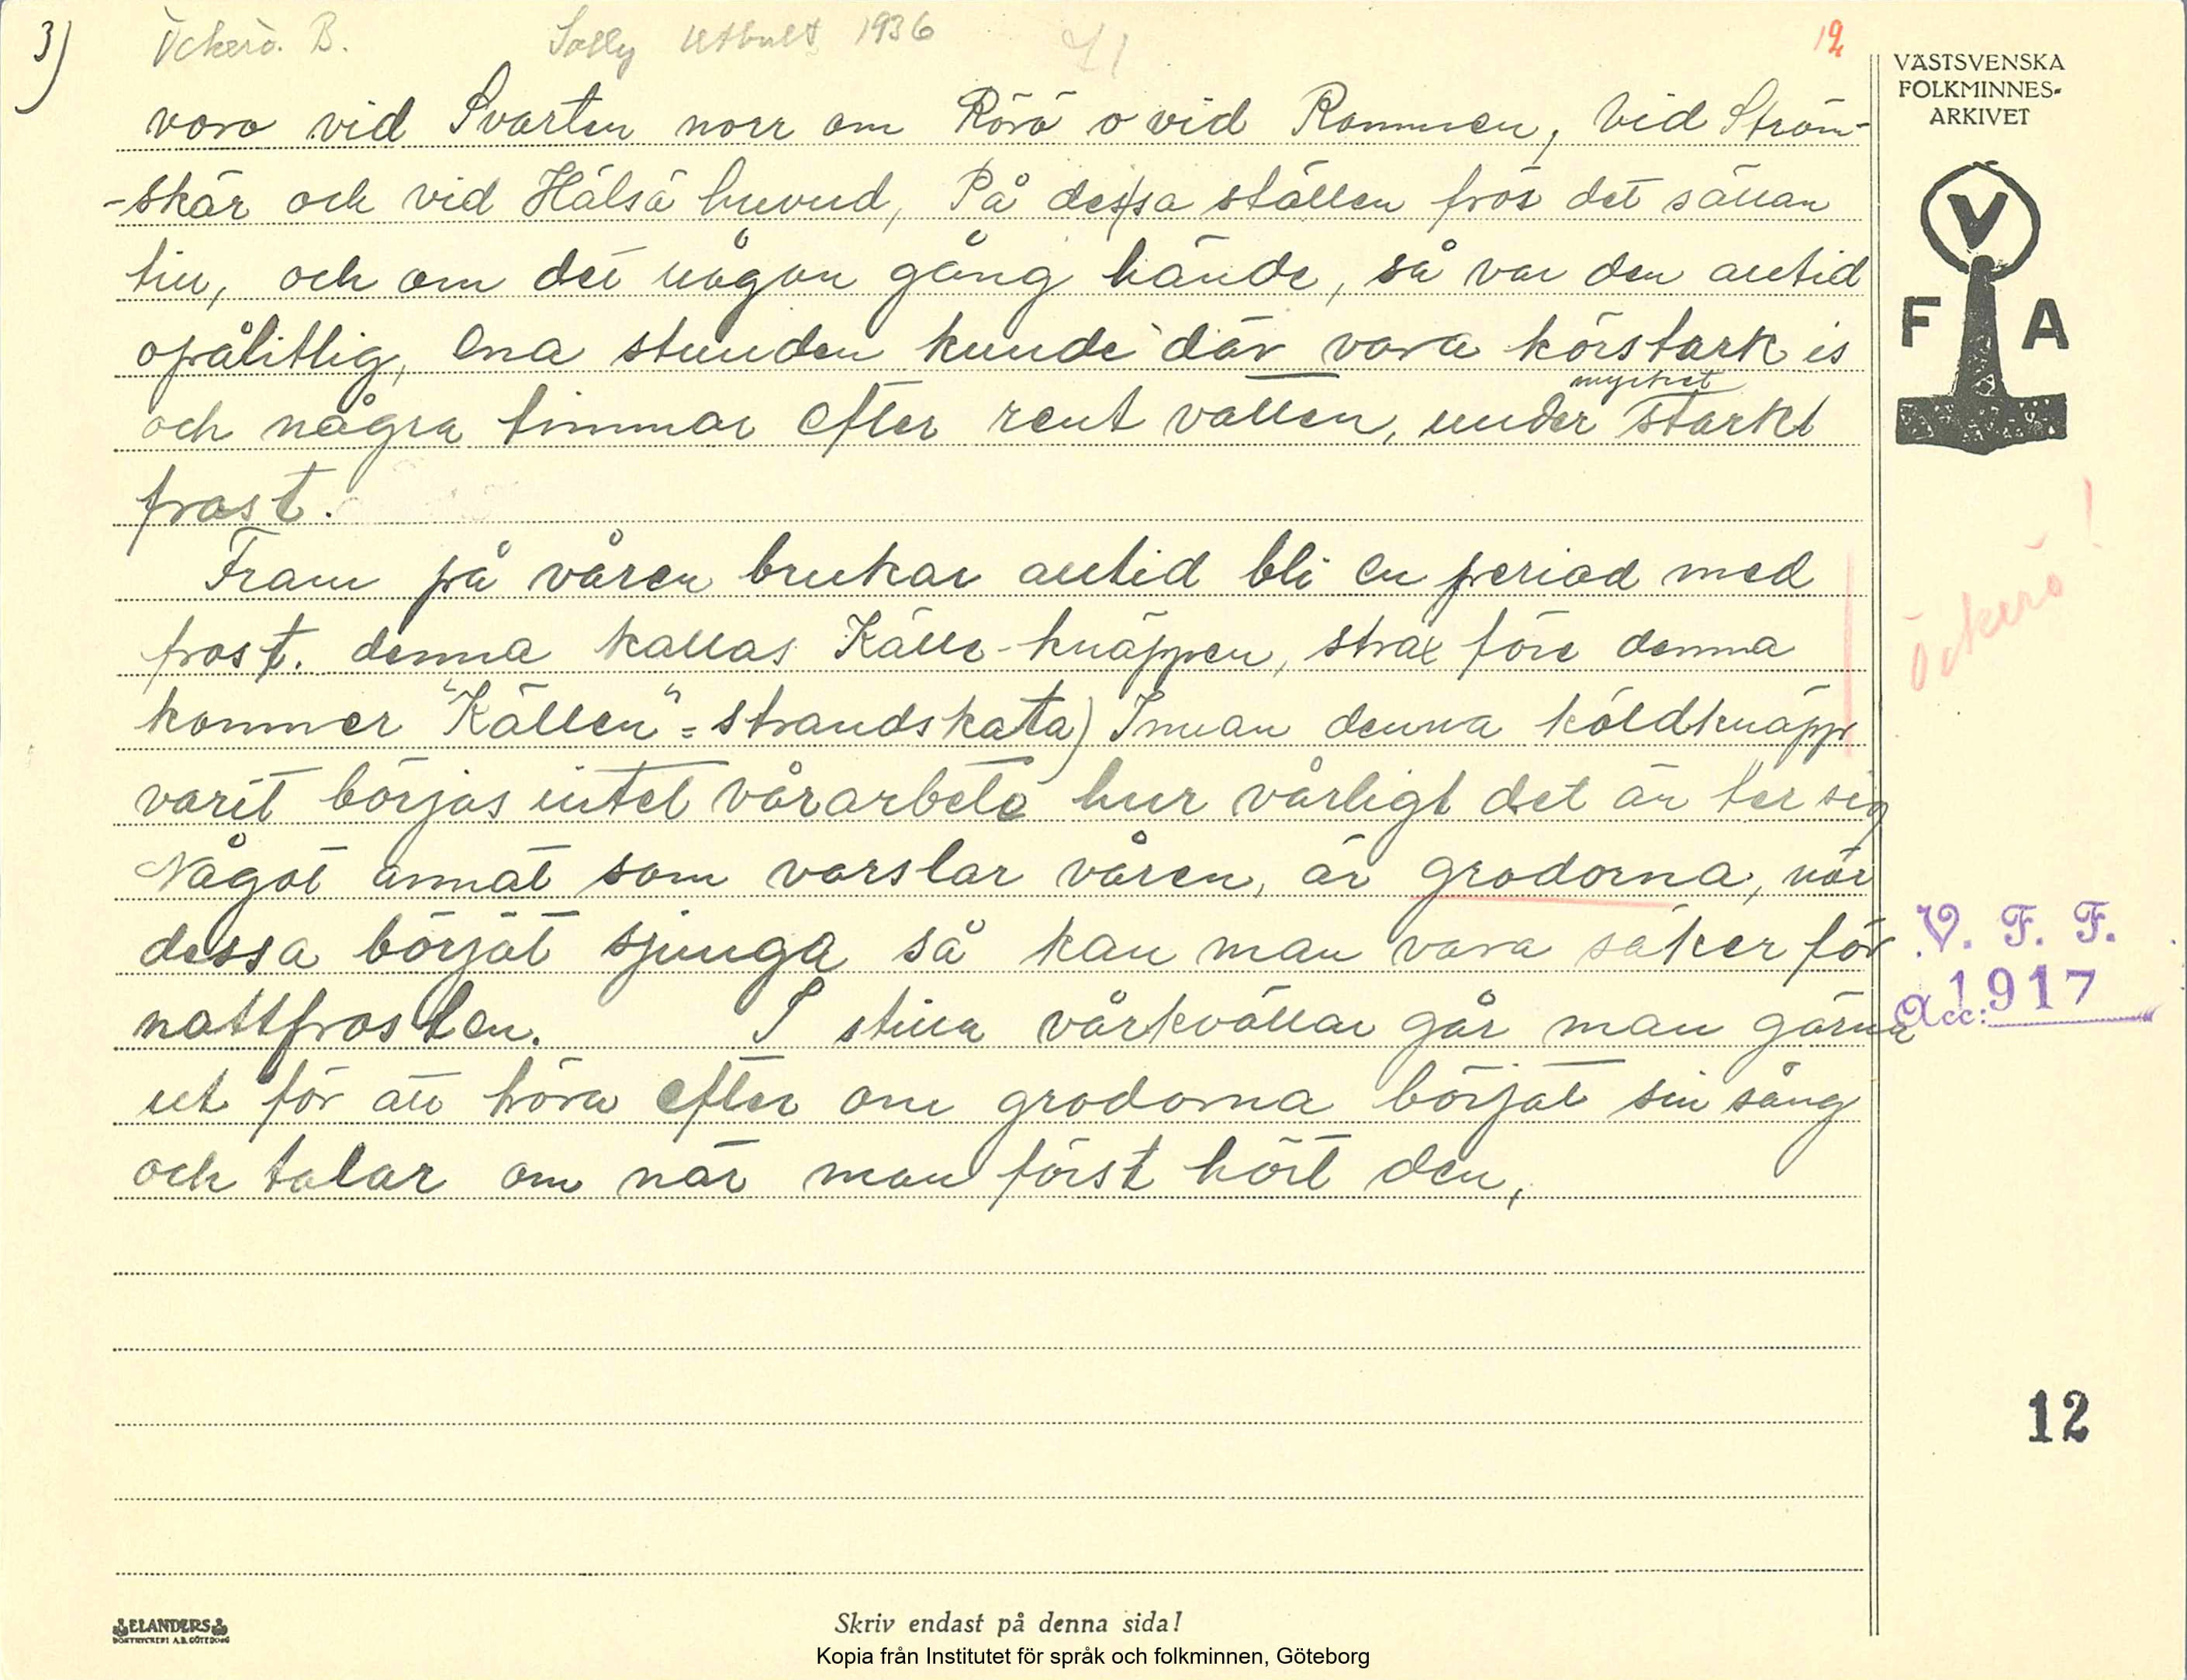 3) Öckerö. B. Sally Utbult 1936 41 12
VÄSTSVENSKA
FOLKMINNES-
ARKIVET
vara vid Svarten norr om Rörö o vid Rammen, vid Ström-
-skär och vid Hälsö huvud, På dessa ställen frös det sällan
till, och om det någon gång hände, så var den alltid
opålitlig, Ena stunden kunde där vara körstark is
och några timmar efter rent vatten, under mycket starkt
frost.
Fram på våren brukar alltid bli en period med
frost. denna kallas Källe-knäppen, strax före denna
kommer "Källen" = strandskata) Innan denna köldknäpp
varit börjas intet vårarbete hur vårligt det än ter sig
Något annat som varslar våren, är grodorna, när
dessa börjat sjunga så kan man vara säker för
nattfrosten. I stilla vårkvällar går man gärna
ut för att höra efter om grodorna börjat sin sång
och talar om när man först hört den,
V
F A
Öckerö!
V. F. F.
Acc: 1917
12
ELANDERS
BOKTRYCKERI A.B. GÖTEBORG
Skriv endast på denna sida!
Kopia från Institutet för språk och folkminnen, Göteborg